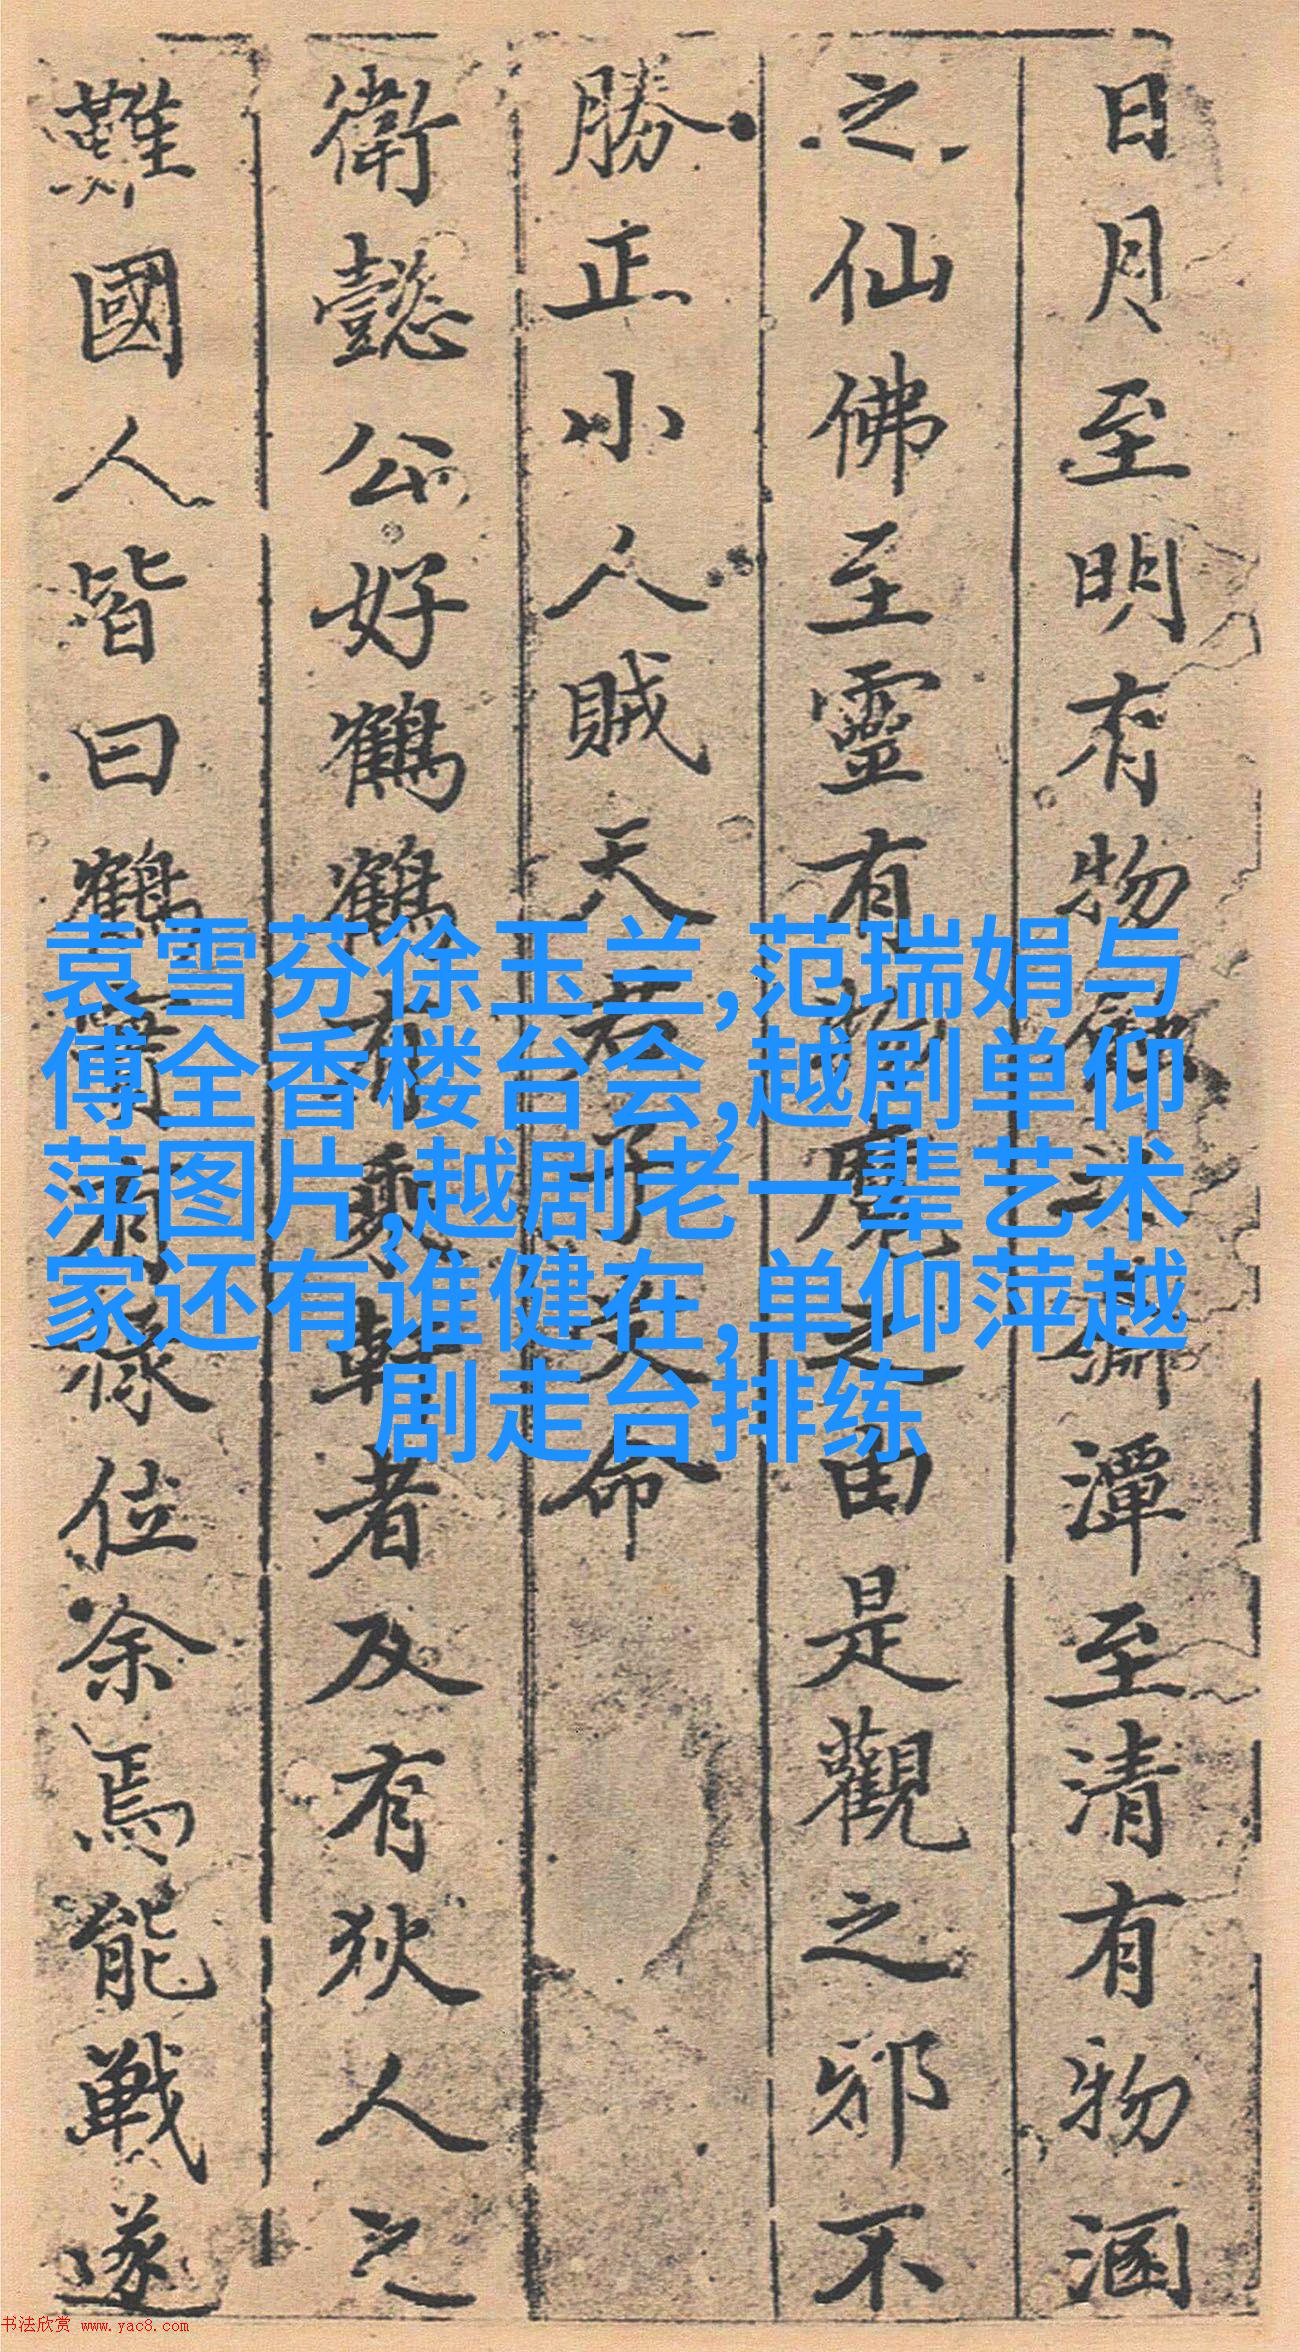 日月至明有物蝕之潭至清有物涵
之仙佛至靈有物魔之由是觀之邪不
勝正小人賊天君子命
衛懿公好鶴鶴有乘軒者及有狄人之
難國人皆曰鶴實有祿位余焉能戰遂
袁雪芬徐玉兰,范瑞娟与
傅全香楼台会,越剧单仰
萍图片,越剧老一辈艺术
家还有谁健在,单仰萍越
剧走台排练
书法欣赏 www.yac8.com